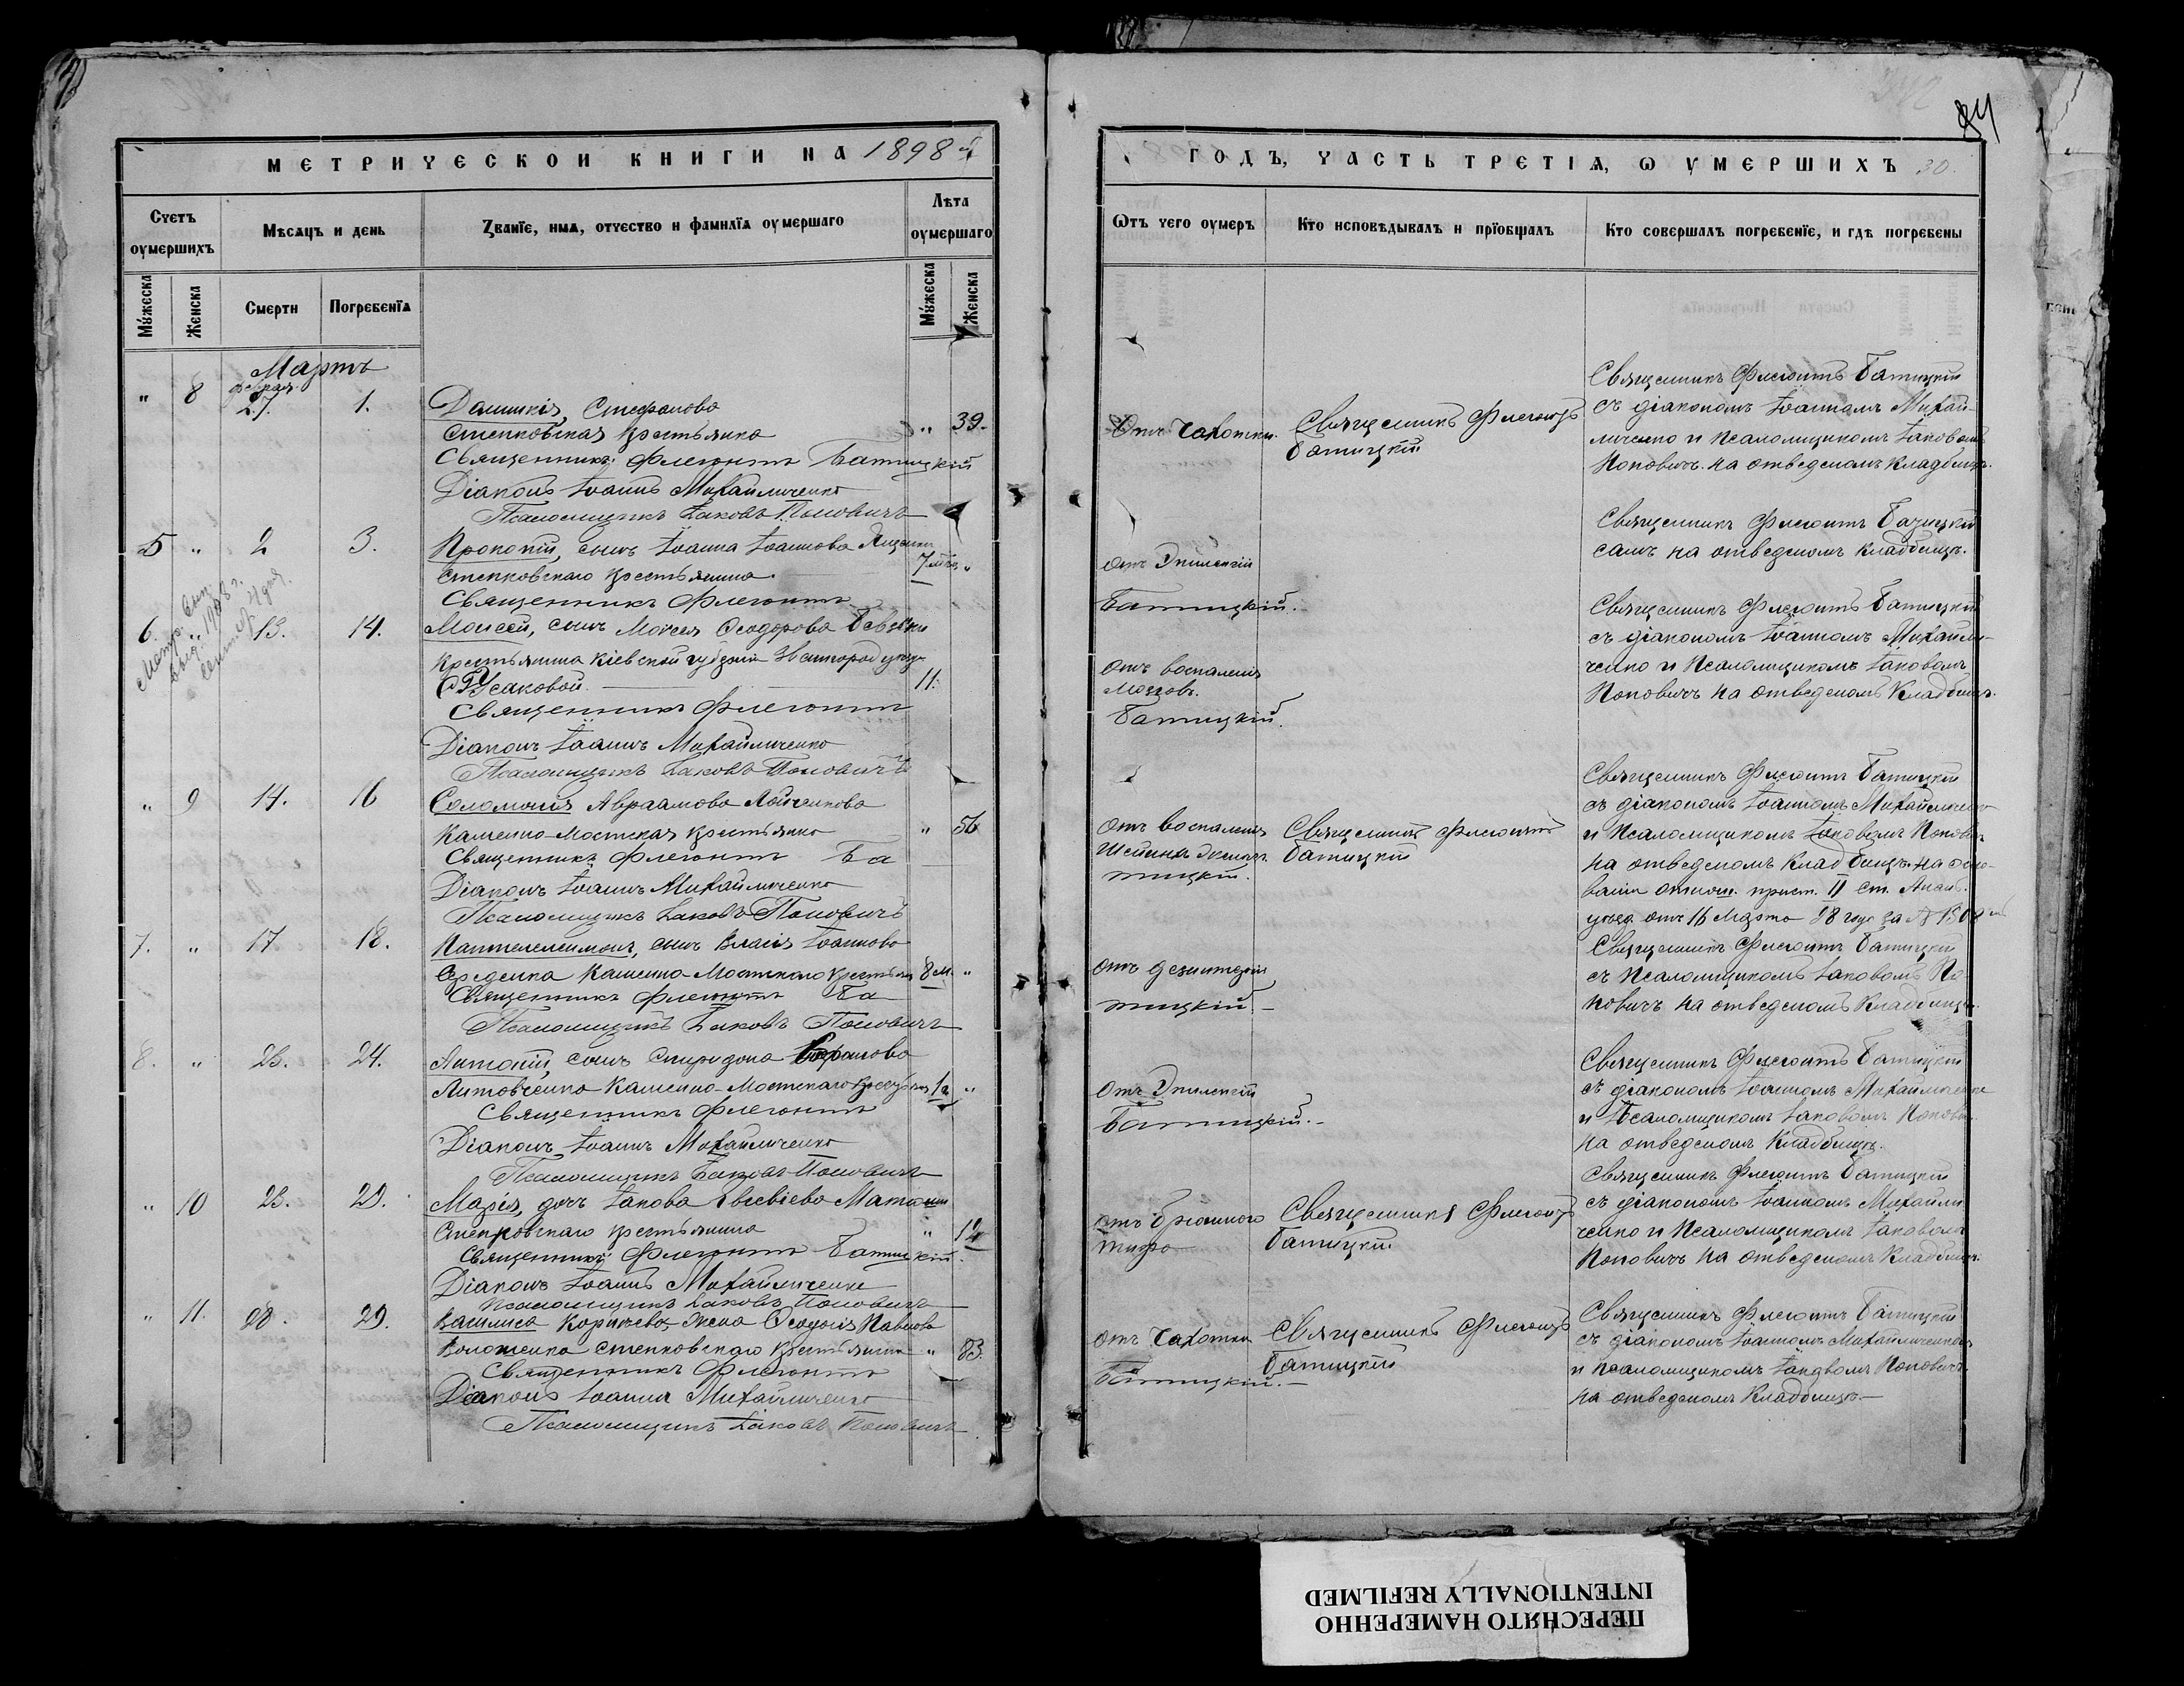 МЕТРИЧЕСКОЙ КНИГИ НА 1898 й
Счетъ оумершихъ
Мѣсѧцъ и день
Званїе, имѧ, отчество и фамилїѧ оумершаго
Лѣта оумершаго
Мужеска
Женска
Смерти
Погребенїѧ
Мужеска
Женска
Мартъ
" 8 27. 1.
Стефанова " 39.
Степковская крестьянка
Священникъ Флегонтъ Батицкій
Діаконъ Іоаннъ Михайличенко
Псаломщикъ Іаковъ Поповичъ
5 " 2 3. Прокопій, сынъ Іоанна Іоаннова
Степковскаго крестьянина.
Священникъ Флегонтъ
6. " 13. 14. Моисей, сынъ Моисея Ѳеодорова
1908 г.
крестьянина Кіевской губерніи
11.
Священникъ Флегонтъ
Діаконъ Іоаннъ Михайличенко
Псаломщикъ Іаковъ Поповичъ
" 9 14. 16 Соломонія Авраамова
Каменно-Мостская крестьянка " 56
Священникъ Флегонтъ Ба
Діаконъ Іоаннъ Михайличенко
Псаломщикъ Іаковъ Поповичъ
7. " 17 18. Пантелеимонъ, сынъ Власія Іоаннова
Середенка Каменно-Мостскаго крестьян. 8 м. "
Священникъ Флегонтъ Ба
Псаломщикъ Іаковъ Поповичъ
8. " 23. 24. Антоній, сынъ Спиридона
Литовченка Каменно-Мостскаго "
Священникъ Флегонтъ
Діаконъ Іоаннъ Михайличенко
Псаломщикъ Іаковъ Поповичъ
" 10 23. 29. Марія, дочь Іакова
Степковскаго крестьянина " 12
Священникъ Флегонтъ Батицкій.
Діаконъ Іоаннъ Михайличенко
Псаломщикъ Іаковъ Поповичъ
" 11. 28. 29. Василиса жена Ѳеодосія Павлова
Волошенка Степковскаго крестьянина " 83.
Священникъ Флегонтъ
Діаконъ Іоаннъ Михайличенко
Псаломщикъ Іаковъ Поповичъ
84
ГОДЪ, ЧАСТЬ ТРЕТІѦ, Ѡ УМЕРШИХЪ 30.
Ѿтъ чего оумеръ
Кто исповѣдывалъ и прїобщалъ
Кто совершалъ погребенїе, и гдѣ погребены
Священникъ Флегонтъ Батицкій
съ діакономъ Іоанномъ Михай-
личенко и Псаломщикомъ Іаковомъ
Поповичъ. на отведеномъ кладбищѣ.
Отъ Чахотки.
Священникъ Флегонтъ
Батицкій
Священникъ Флегонтъ Батицкій
самъ на отведеномъ кладбищѣ.
Отъ Эпилепсіи
Батицкій.
Священникъ Флегонтъ Батицкій
съ діакономъ Іоанномъ Михайли-
ченко и Псаломщикомъ Іаковомъ
Поповичъ на отведеномъ кладбищѣ.
Отъ воспаленія
мозговъ.
Батицкій.
Священникъ Флегонтъ Батицкій
съ діакономъ Іоанномъ Михайличенко
и Псаломщикомъ Іаковомъ Поповичъ
на отведеномъ кладбищѣ на осно-
ваніи отнош. прист. II ст. Анан.
уѣзд. отъ 16 Марта 98 года за №
Отъ воспаленія
Священникъ Флегонтъ
Батицкій
тицкій.
Священникъ Флегонтъ Батицкій
съ Псаломщикомъ Іаковомъ По-
повичъ на отведеномъ кладбищѣ.
Отъ дезинтеріи
тицкій.
Священникъ Флегонтъ Батицкій
съ діакономъ Іоанномъ Михайличенко
и Псаломщикомъ Іаковомъ Поповичъ
на отведеномъ кладбищѣ.
Отъ Эпилепсіи
Батицкій.
Священникъ Флегонтъ Батицкій
съ діакономъ Іоанномъ Михайли-
ченко и Псаломщикомъ Іаковомъ
Поповичъ на отведеномъ кладбищѣ.
Отъ брюшного
тифа
Священникъ Флегонтъ
Батицкій.
Священникъ Флегонтъ Батицкій
съ діакономъ Іоанномъ Михайличенко
и Псаломщикомъ Іаковомъ Поповичъ
на отведеномъ кладбищѣ
Отъ Чахотки
Священникъ Флегонтъ
Батицкій
Батицкій.
ПЕРЕСНЯТО НАМЕРЕННО
INTENTIONALLY REFILMED